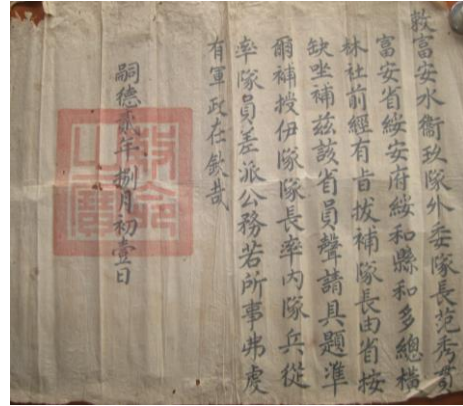 敕富安水衛玖隊外委隊長范秀貫
富安省綏安府綏和縣和多總橫
林社前經有旨拔補隊長由省按
缺坐補茲該省員聲請具題準
爾補授伊隊隊長率內隊兵從
率隊員差派公務若所事弗虔
有軍政在欽哉
嗣德貳年捌月初壹日
敕命之寶